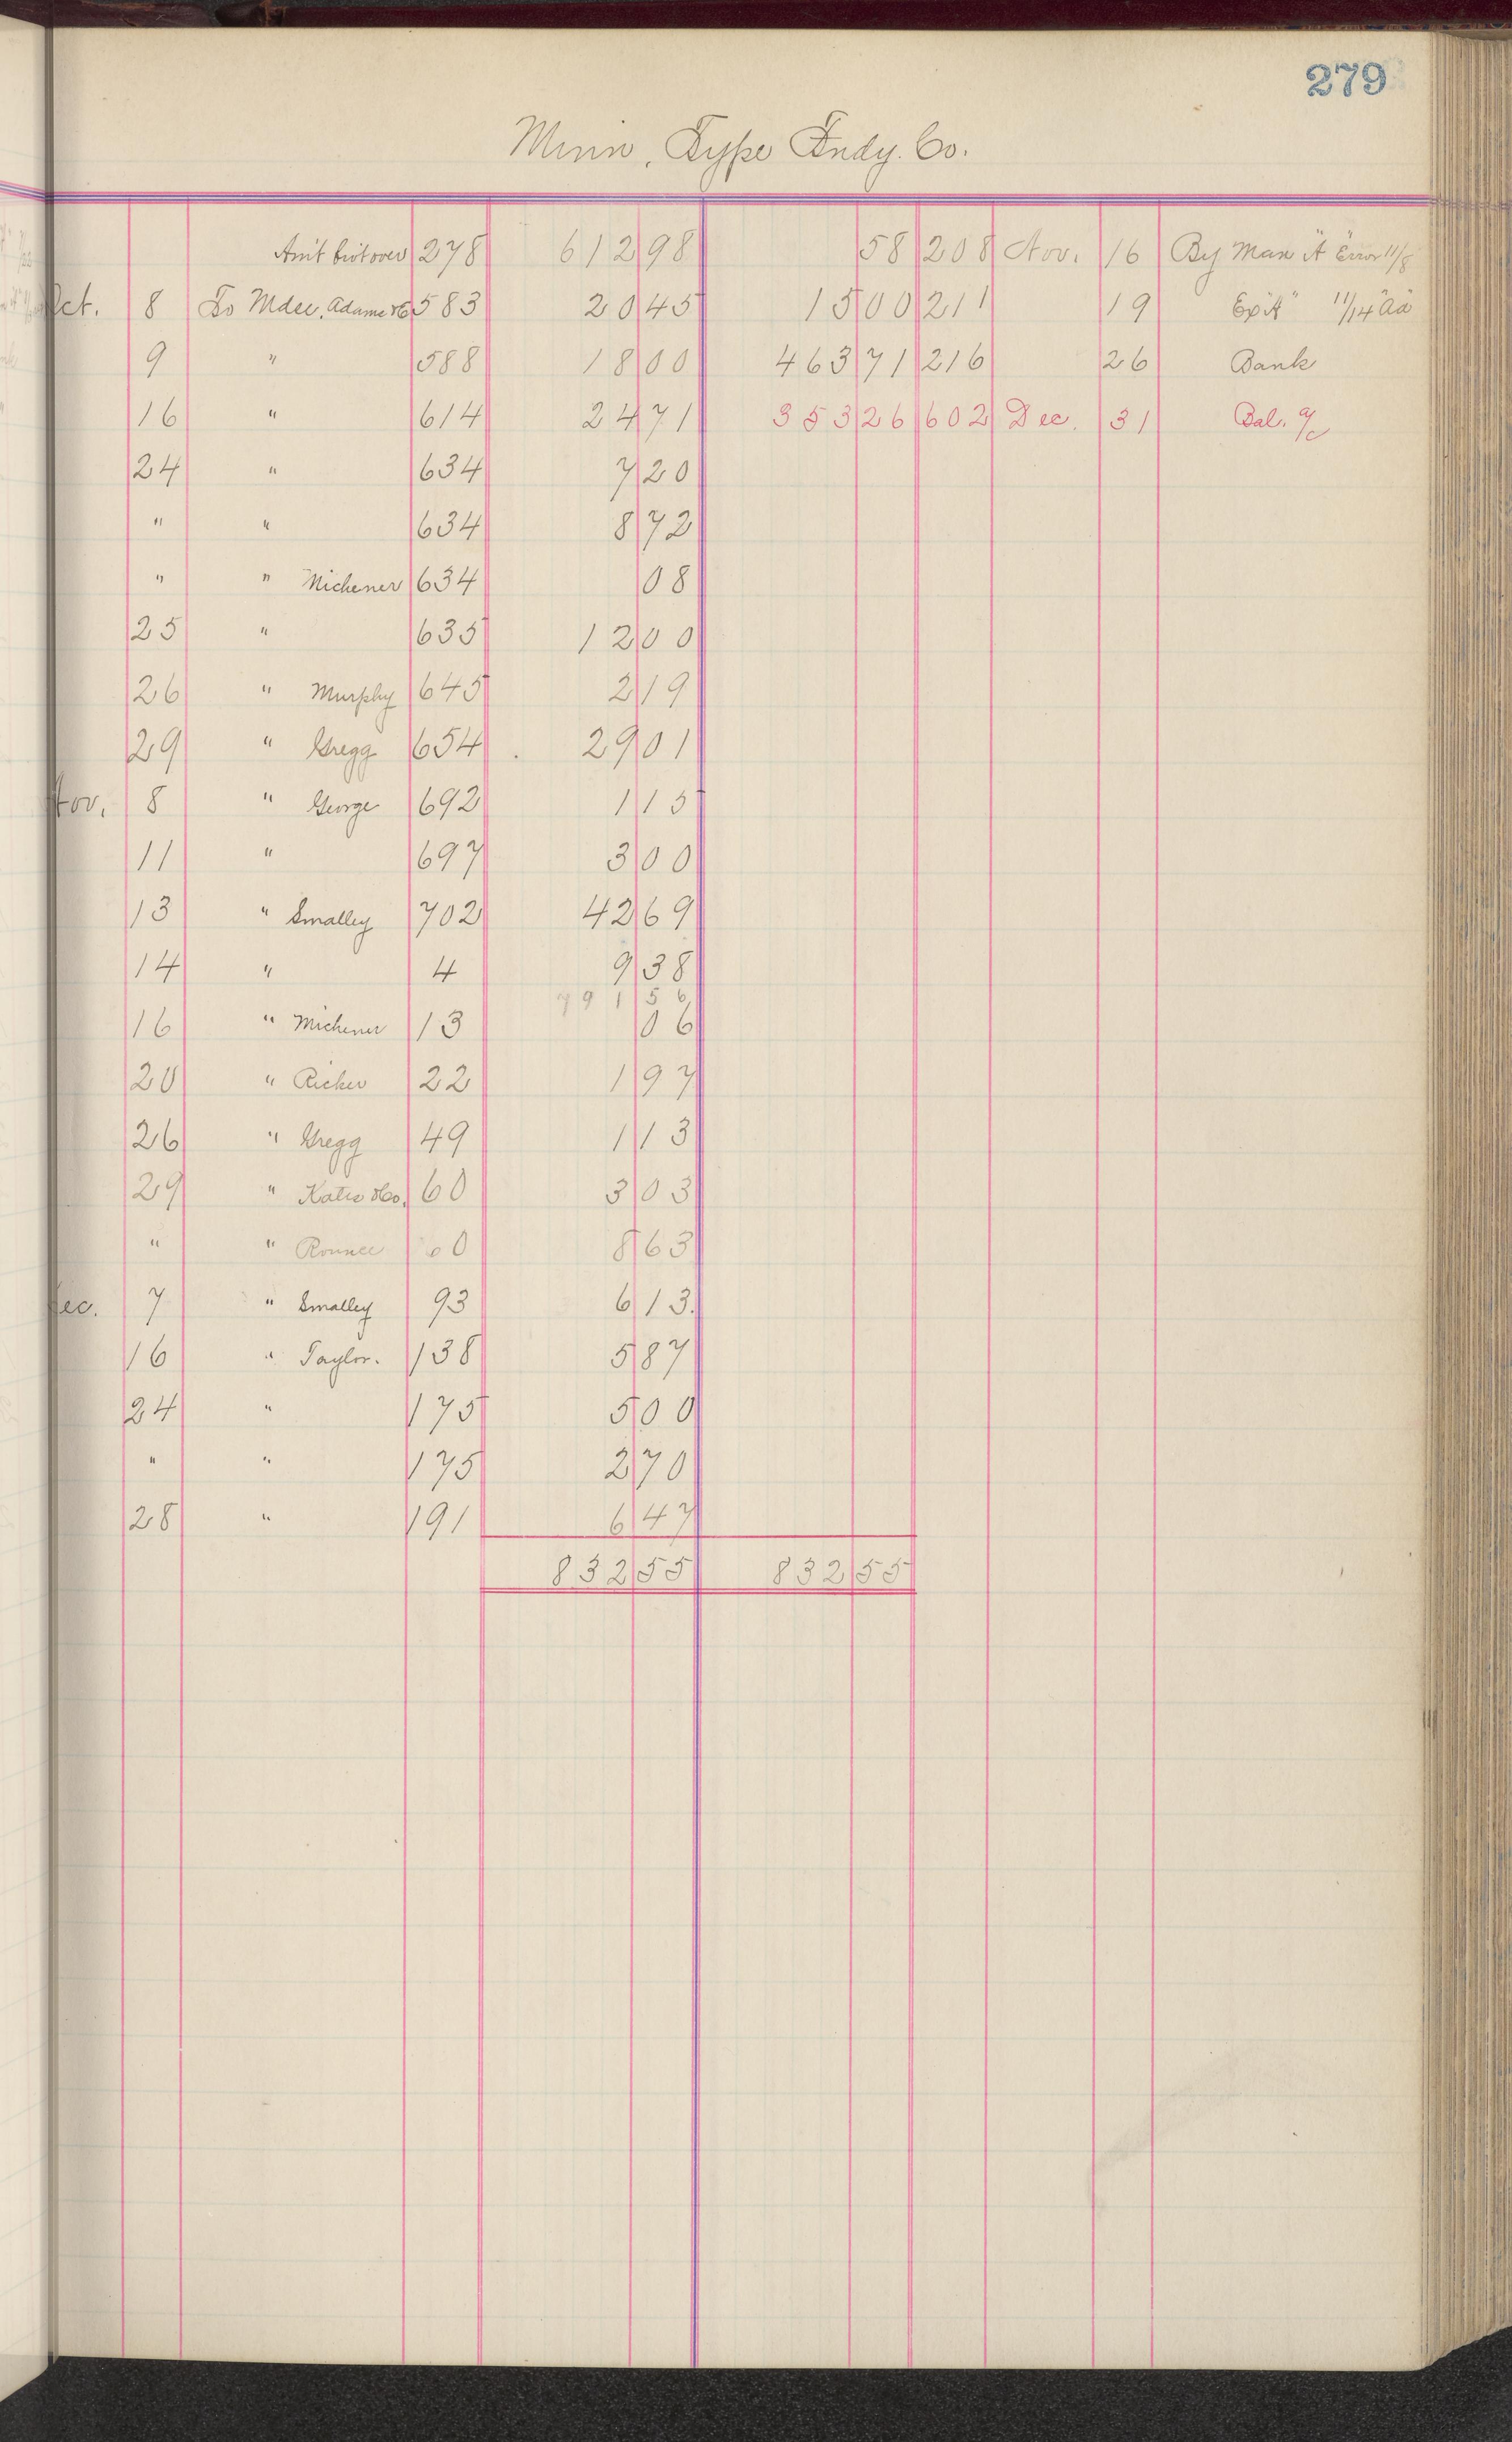 279
Minn. Type Fndy. Co.
Am't brot over 278 612 98 58 208 Nov. 16 By Man "A" Error 11/8
Oct. 8 To Mdse. Adams &Co 583 20 45 15 00 211 19 Ex "A" 11/14 "Aa"
9 " 588 18 00 463 71 216 26 Bank
16 " 614 24 71 353 26 602 Dec. 31 Bal. a/c
24 " 634 7 20
" " 634 8 72
" " Michener 634 08
25 " 635 12 00
26 " Murphy 645 2 19
29 " Gregg 654 29 01
Nov. 8 " George 692 1 15
11 " 697 3 00
13 " Smalley 702 42 69
14 " 4 9 38
791 56
16 " Michener 13 06
20 " Ricker 22 1 97
26 " Gregg 49 1 13
29 " Katis &Co. 60 3 03
" " Rounce 60 8 63
Dec. 7 " Smalley 93 6 13
16 " Taylor. 138 5 87
24 " 175 5 00
" " 175 2 70
28 " 191 6 47
832 55 832 55